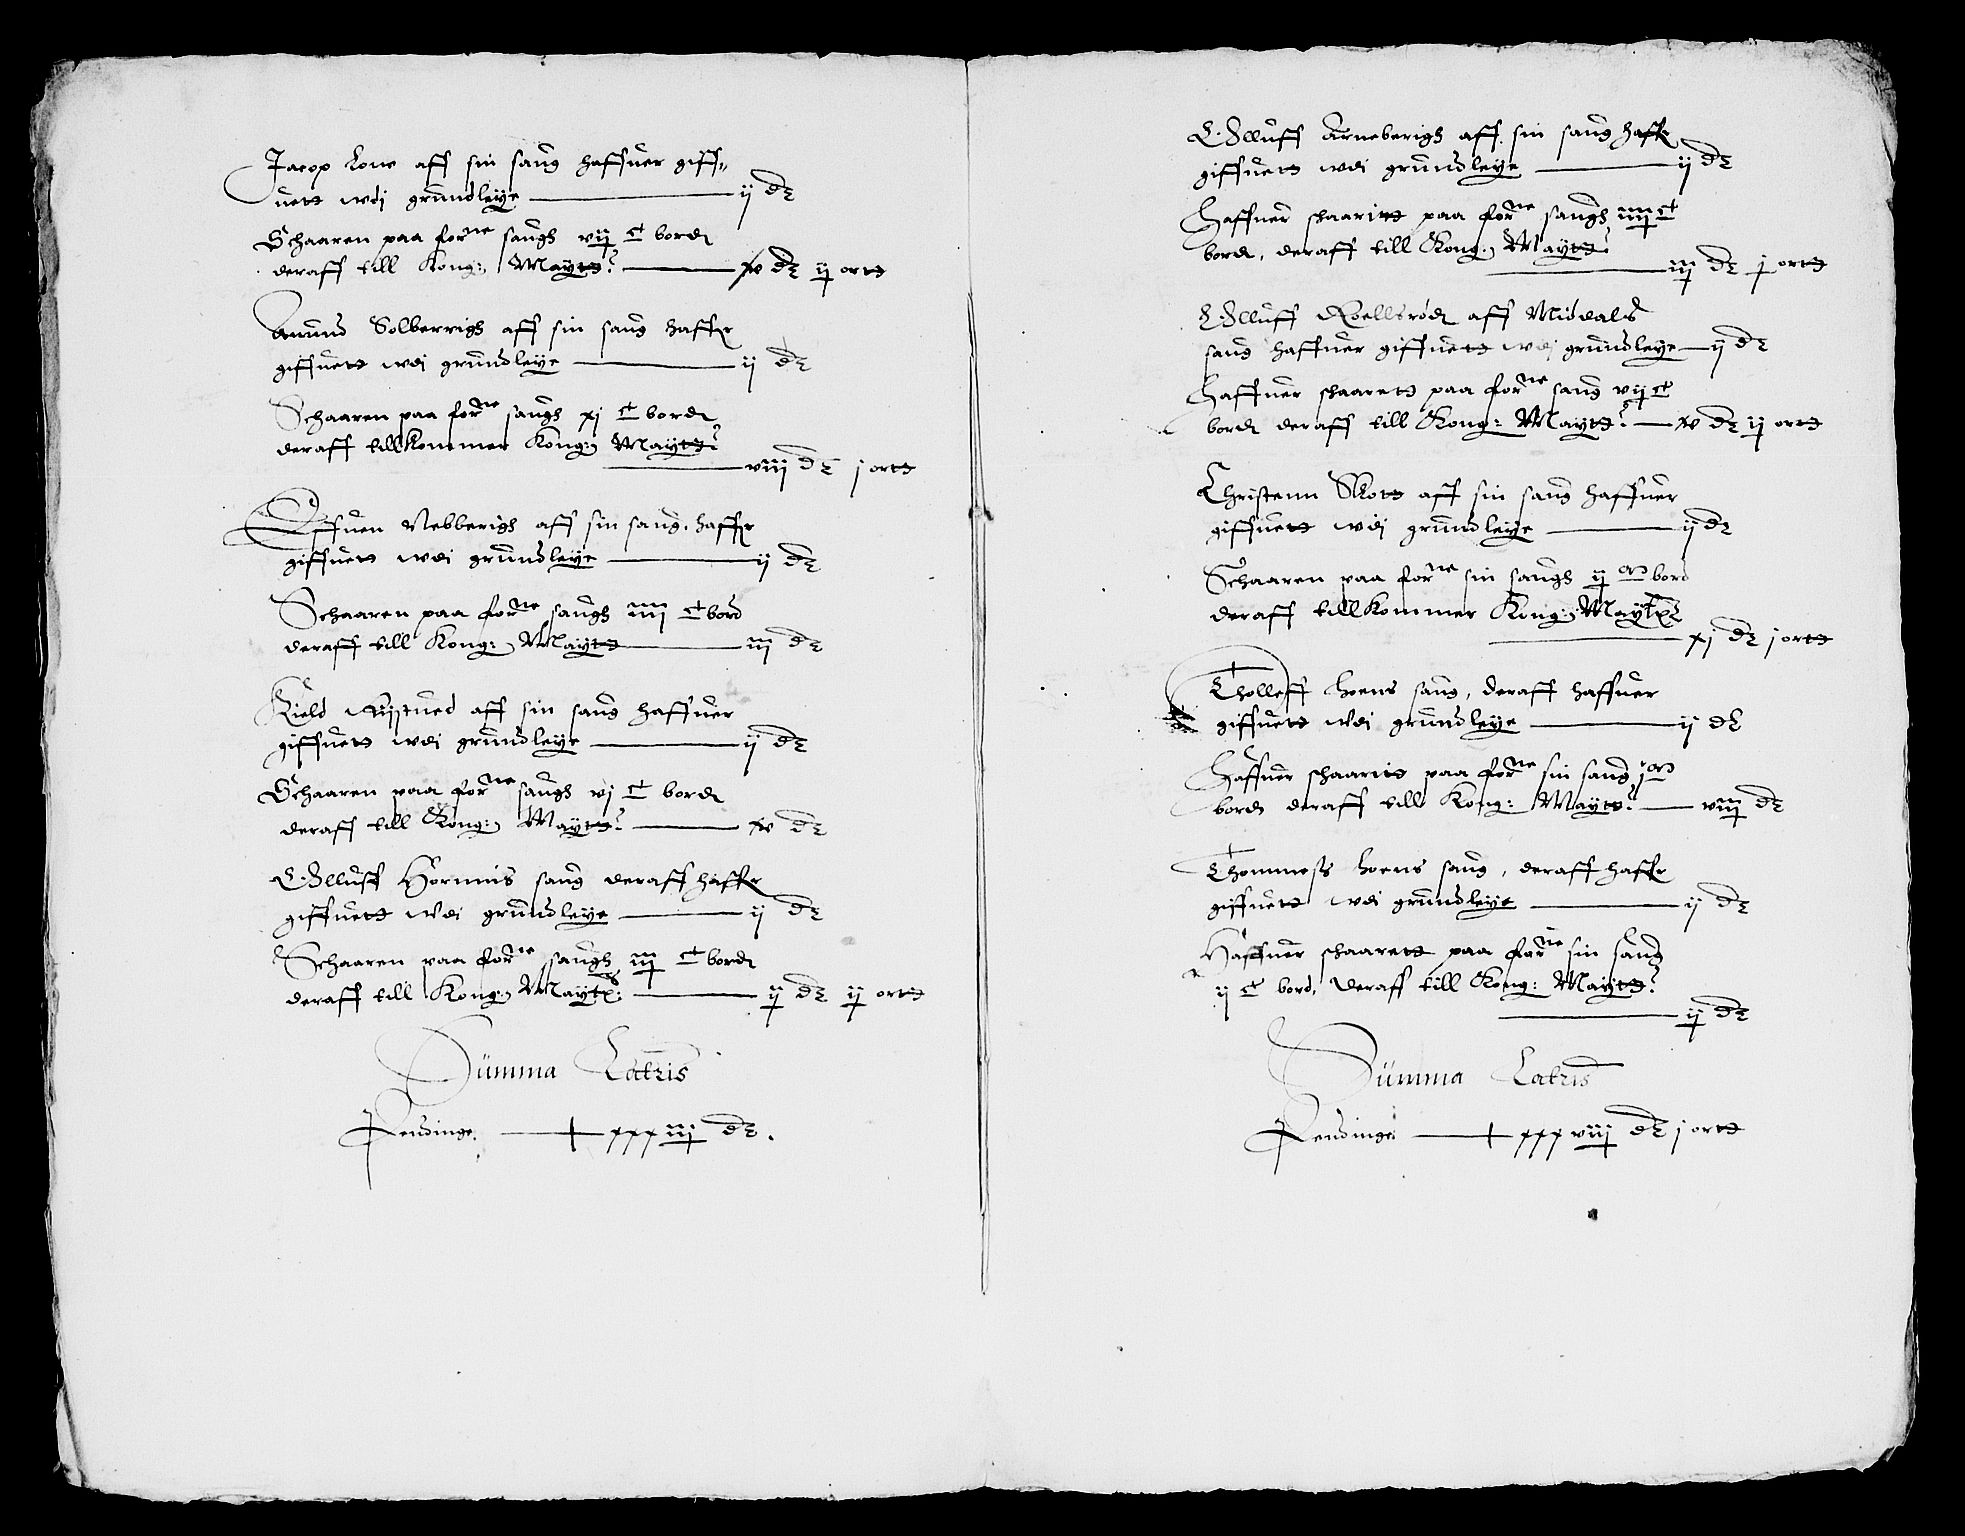 Jacop Lone aff sin saug haffuer giff„
uett wdj grundleye — ij dr
Schaaren paa forne saugh vij ct bord
deraff till Kong: Maytt: — v dr ij ortt
Amund Solberrigh aff sin saug haffr
giffuett wdi grundleye — ij dr
Schaaren paa forne saugh xj ct bord
deraff tillkommer Kong: Maytt:
— viij dr j ortt
Effuen Nebberigh aff sin saug, haffr
giffuett wdi grundleye — ij dr
Schaaren paa forne saugh iiij ct bord
deraff till Kong: Maytt — iij dr
Kield aff sin saug haffuer
giffuett wdi grundleye — ij dr
Schaaren paa forne saugh vj ct bord
deraff till Kong: Maytt: — v dr
E: Olluff Hormnis saug deraff haffr
giffuett wdi grundleye — ij dr
Schaaren paa forne saugh iij ct bord
deraff till Kong: Maytt: — ij dr ij ortt
Summa Latris
Pendinge — xxxiij dr.
E: Olluff Arneberigh aff sin saug haffr
giffuett wdi grundleye — ij dr
Haffuer schaaritt paa forne saugh iiij ct
bord, deraff till Kong: Maytt:
— iij dr j ortt
E: Olluff Roellsrød aff Middals
saug haffuer giffuett wdi grundleye — ij dr
Haffuer schaarett paa forne saug vij ct
bord deraff till Kong: Maytt: — v dr ij ortt
Christenn Skott aff sin saug haffuer
giffuett wdj grundleye — ij dr
Schaaren paa forne sin saugh ij m bord
deraff tillkommer Kong: Maytt:
— xj dr j ortt
Tholleff hoens saug, deraff haffuer
giffuett wdi grundleye — ij dr
Haffuer schaaritt paa forne sin saug j m
bord deraff till Kong: Maytt: — viij dr
Thommess hoens saug, deraff haffr
giffuett wdi grundleye — ij dr
Haffuer schaarett paa forne sin saug
ij ct bord, deraff till Kong: Maytt:
— ij dr
Summa Latris
Pendinge — xxxviij dr j ortt